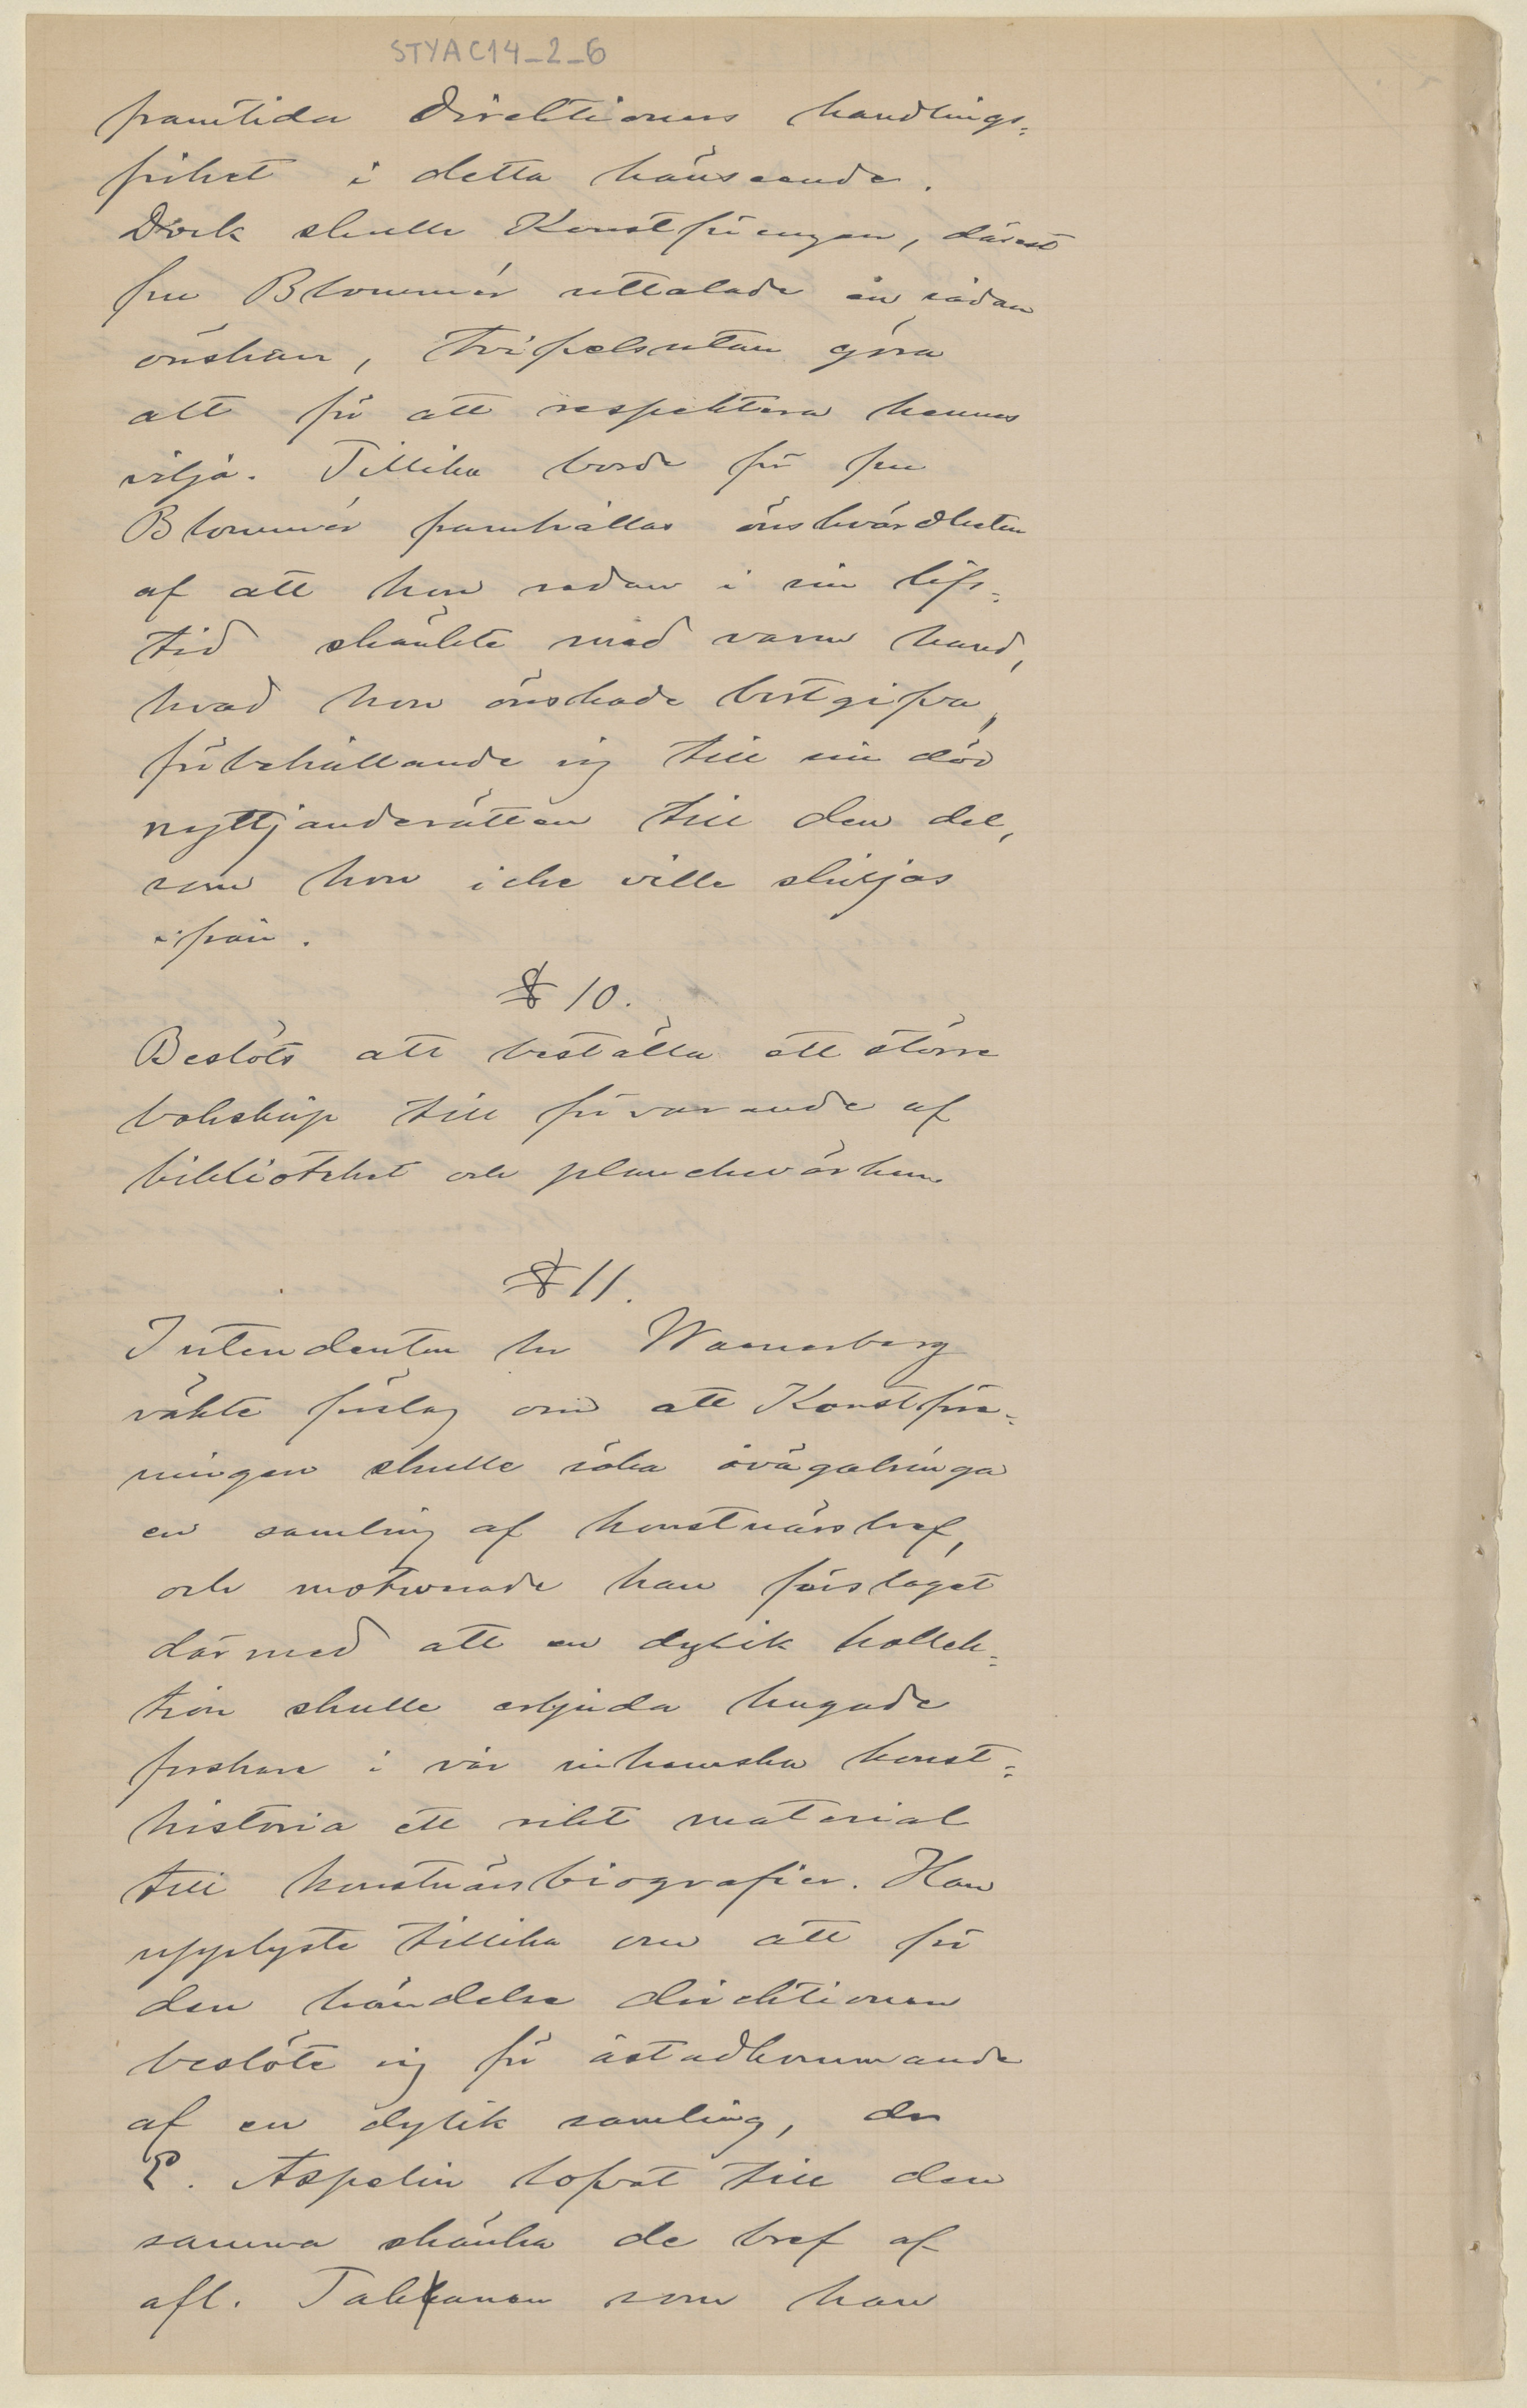 STYAC14_2_6
framtida direktioners handlings-
frihet i detta hänseende.
Dock skulle Konstföreningen, därest
fru Blommér uttalade en sådan
önskan, tvifvelsutan göra
allt för att respektera hennes
vilja. Tillika borde för fru
Blommér framhållas önskvärdheten
af att hon redan i sin lifs-
tid skänkte med varm hand,
hvad hon önskade bortgifva,
förbehållande sig till sin död
nyttjanderätten till den del,
som hon icke ville skiljas
ifrån.
§ 10.
Beslöts att beställa ett större
bokskåp till förvarande af
biblioteket och planchvärken.
§ 11.
Intendenten hr Wasastjerna
väkte förslag om att Konstföre-
ningen skulle söka åvägabringa
en samling af konstnärsbref,
och motiverade han förslaget
därmed att en dylik kollek-
tion skulle erbjuda hugade
forskare i vår inhemska konst-
historia ett rikt material
till konstnärsbiografier. Han
upplyste tillika om att för
den händelse direktionen
beslöte sig för åstadkommande
af en dylik samling, dr
E. Aspelin lofvat till den
samma skänka de bref af
afl. Takkanen som han